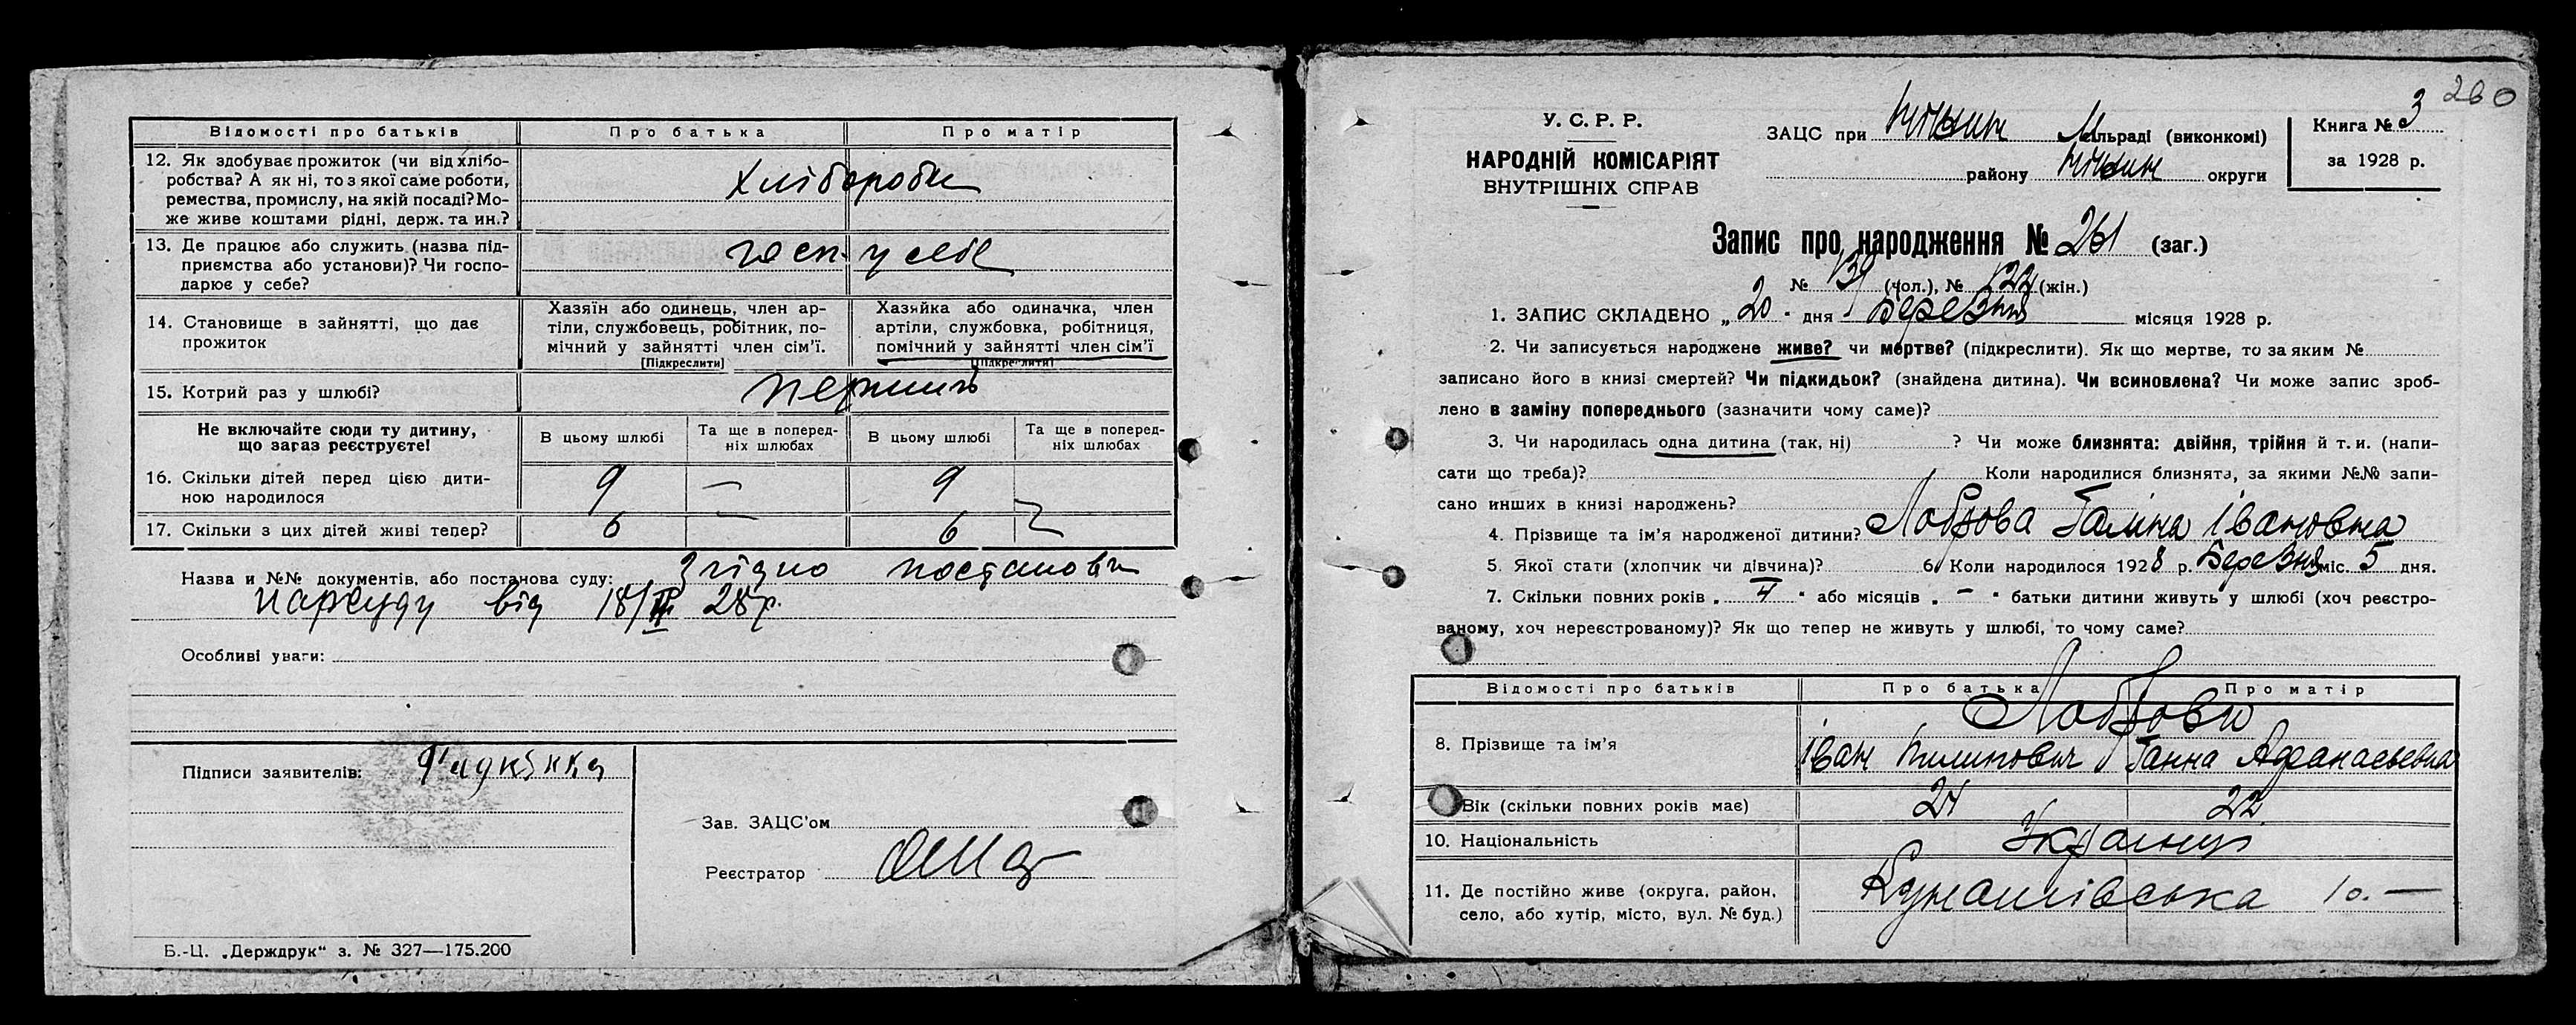 Відомості про батьків Про батька Про матір
12. Як здобуває прожиток (чи від хлібо-
робства? А як ні, то з якої саме роботи,
ремества, промислу, на якій посаді? Мо-
же живе коштами рідні, держ. та ин.?
Хлібороби
13. Де працює або служить (назва під-
приємства або установи)? Чи госпо-
дарює у себе?
госп. у себе
14. Становище в зайнятті, що дає
прожиток
Хазяїн або одинець, член ар-
тіли, службовець, робітник, по-
мічний у зайнятті член сім'ї.
[Підкреслити]
Хазяйка або одиначка, член
артіли, службовка, робітниця,
помічний у зайнятті член сім'ї
[Підкреслити]
15. Котрий раз у шлюбі?
Не включайте сюди ту дитину,
що зараз реєструєте!
В цьому шлюбі
Та ще в поперед-
ніх шлюбах
В цьому шлюбі
Та ще в поперед-
ніх шлюбах
16. Скільки дітей перед цією дити-
ною народилося
9 — 9
17. Скільки з цих дітей живі тепер?
6 — 6
Назва и №№ документів, або постанова суду: Згідно постанови
нарсуду від 18/III 28 р.
Особливі уваги:
Підписи заявителів:
Зав. ЗАЦС'ом
Реєстратор
Б.-Ц. „Держдрук“ з. № 327—175.200
260
У. С. Р. Р.
НАРОДНІЙ КОМІСАРІЯТ
ВНУТРІШНІХ СПРАВ
ЗАЦС при Ніжин М ільраді (виконкомі)
району Ніжин округи
Книга № 3
за 1928 р.
Запис про народження № 261 (заг.)
№ 139 (чол.), № 122 (жін.)
1. ЗАПИС СКЛАДЕНО „ 20 “ дня Березня місяця 1928 р.
2. Чи записується народжене живе? чи мертве? (підкреслити). Як що мертве, то за яким №
записано його в книзі смертей? Чи підкидьок? (знайдена дитина). Чи всиновлена? Чи може запис зроб-
лено в заміну попереднього (зазначити чому саме)?
3. Чи народилась одна дитина (так, ні) ? Чи може близнята: двійня, трійня й т. и. (напи-
сати що треба)? Коли народилися близнята, за якими №№ запи-
сано инших в книзі народжень?
4. Прізвище та ім'я народженої дитини? Лобзова Галина Івановна
5. Якої стати (хлопчик чи дівчина)? 6. Коли народилося 1928 р. Березня міс. 5 дня.
7. Скільки повних років „ “ або місяців „ — “ батьки дитини живуть у шлюбі (хоч реєстро-
ваному, хоч нереєстрованому)? Як що тепер не живуть у шлюбі, то чому саме?
Відомості про батьків Про батька Про матір
Лобзови
8. Прізвище та ім'я
Іван Пилипович Ганна Афанасьевна
Вік (скільки повних років має) 22
10. Національність Українці
11. Де постійно живе (округа, район,
село, або хутір, місто, вул. № буд.)
Кунашівська 10. —